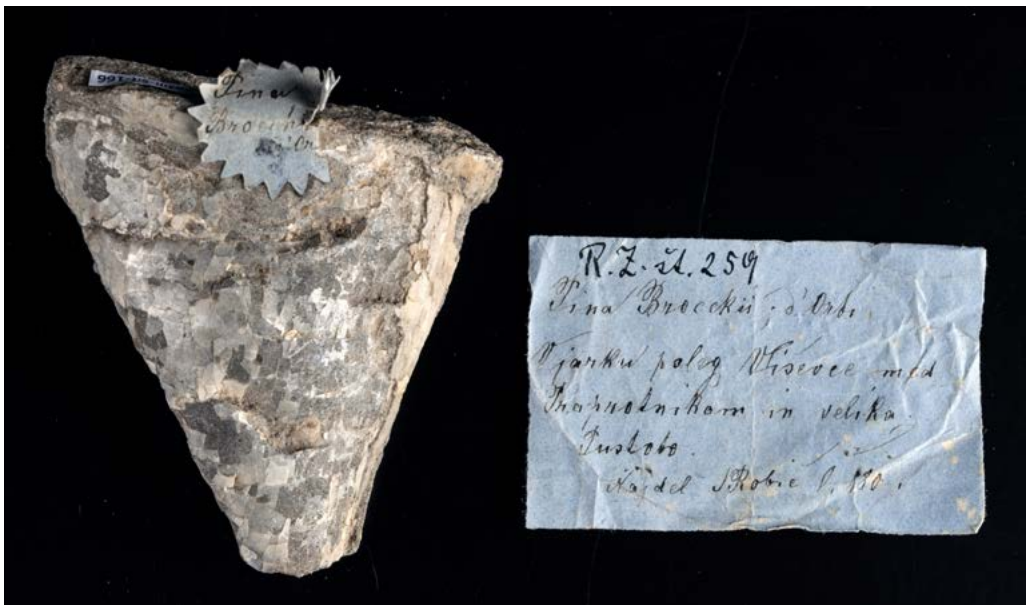 Pina
Brocchi
d'Or
R.Z. št. 259
Pina Brocckii; d'Orbi.
V jarku poleg Viševce med
Praprotnikam in velika
Pustoto.
Najdel SRobič l. 180.